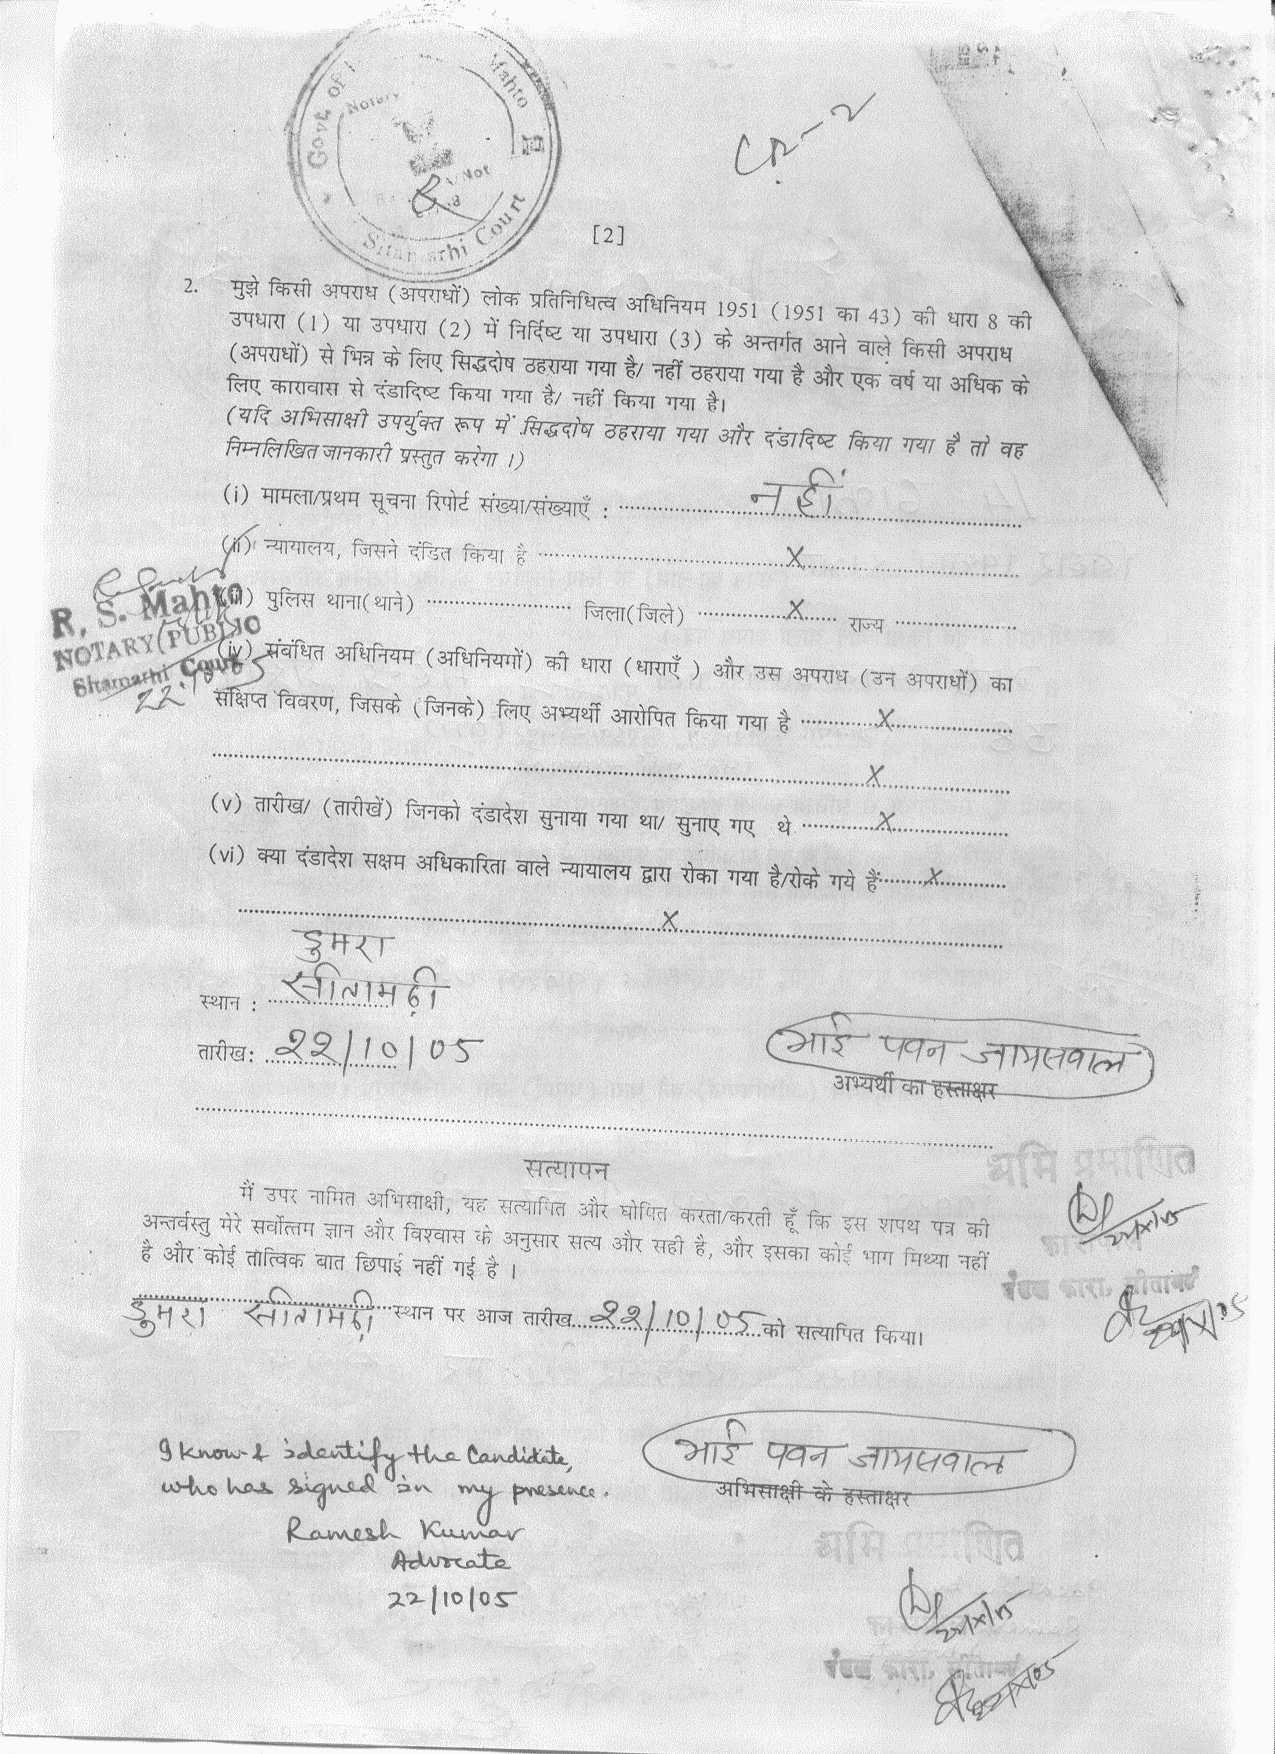 Govt. of
Mahto
Notary
Not
Sitamarhi Court
[2]
2. मुझे किसी अपराध (अपराधों) लोक प्रतिनिधित्व अधिनियम 1951 (1951 का 43) की धारा 8 की
उपधारा (1) या उपधारा (2) में निर्दिष्ट या उपधारा (3) के अन्तर्गत आने वाले किसी अपराध
(अपराधों) से भिन्न के लिए सिद्धदोष ठहराया गया है/ नहीं ठहराया गया है और एक वर्ष या अधिक के
लिए कारावास से दंडादिष्ट किया गया है/ नहीं किया गया है।
(यदि अभिसाक्षी उपर्युक्त रूप में सिद्धदोष ठहराया गया और दंडादिष्ट किया गया है तो वह
निम्नलिखित जानकारी प्रस्तुत करेगा ।)
(i) मामला/प्रथम सूचना रिपोर्ट संख्या/संख्याएँ : नहीं
(ii) न्यायालय, जिसने दंडित किया है X
(iii) पुलिस थाना(थाने) जिला(जिले) X राज्य
R. S. Mahto
NOTARY (PUBLIC)
Sitamarhi Court
22.10.05
(iv) संबंधित अधिनियम (अधिनियमों) की धारा (धाराएँ ) और उस अपराध (उन अपराधों) का
संक्षिप्त विवरण, जिसके (जिनके) लिए अभ्यर्थी आरोपित किया गया है X
X
(v) तारीख/ (तारीखें) जिनको दंडादेश सुनाया गया था/ सुनाए गए थे X
(vi) क्या दंडादेश सक्षम अधिकारिता वाले न्यायालय द्वारा रोका गया है/रोके गये हैं X
X
डुमरा
स्थान : सीतामढ़ी
तारीख: 22/10/05
भाई पवन जायसवाल
अभ्यर्थी का हस्ताक्षर
सत्यापन
मैं उपर नामित अभिसाक्षी, यह सत्यापित और घोषित करता/करती हूँ कि इस शपथ पत्र की
अन्तर्वस्तु मेरे सर्वोत्तम ज्ञान और विश्वास के अनुसार सत्य और सही है, और इसका कोई भाग मिथ्या नहीं
है और कोई तात्विक बात छिपाई नहीं गई है ।
डुमरा सीतामढ़ी स्थान पर आज तारीख 22/10/05 को सत्यापित किया।
I know & identify the Candidate,
who has signed in my presence.
Ramesh Kumar
Advocate
22/10/05
भाई पवन जायसवाल
अभिसाक्षी के हस्ताक्षर